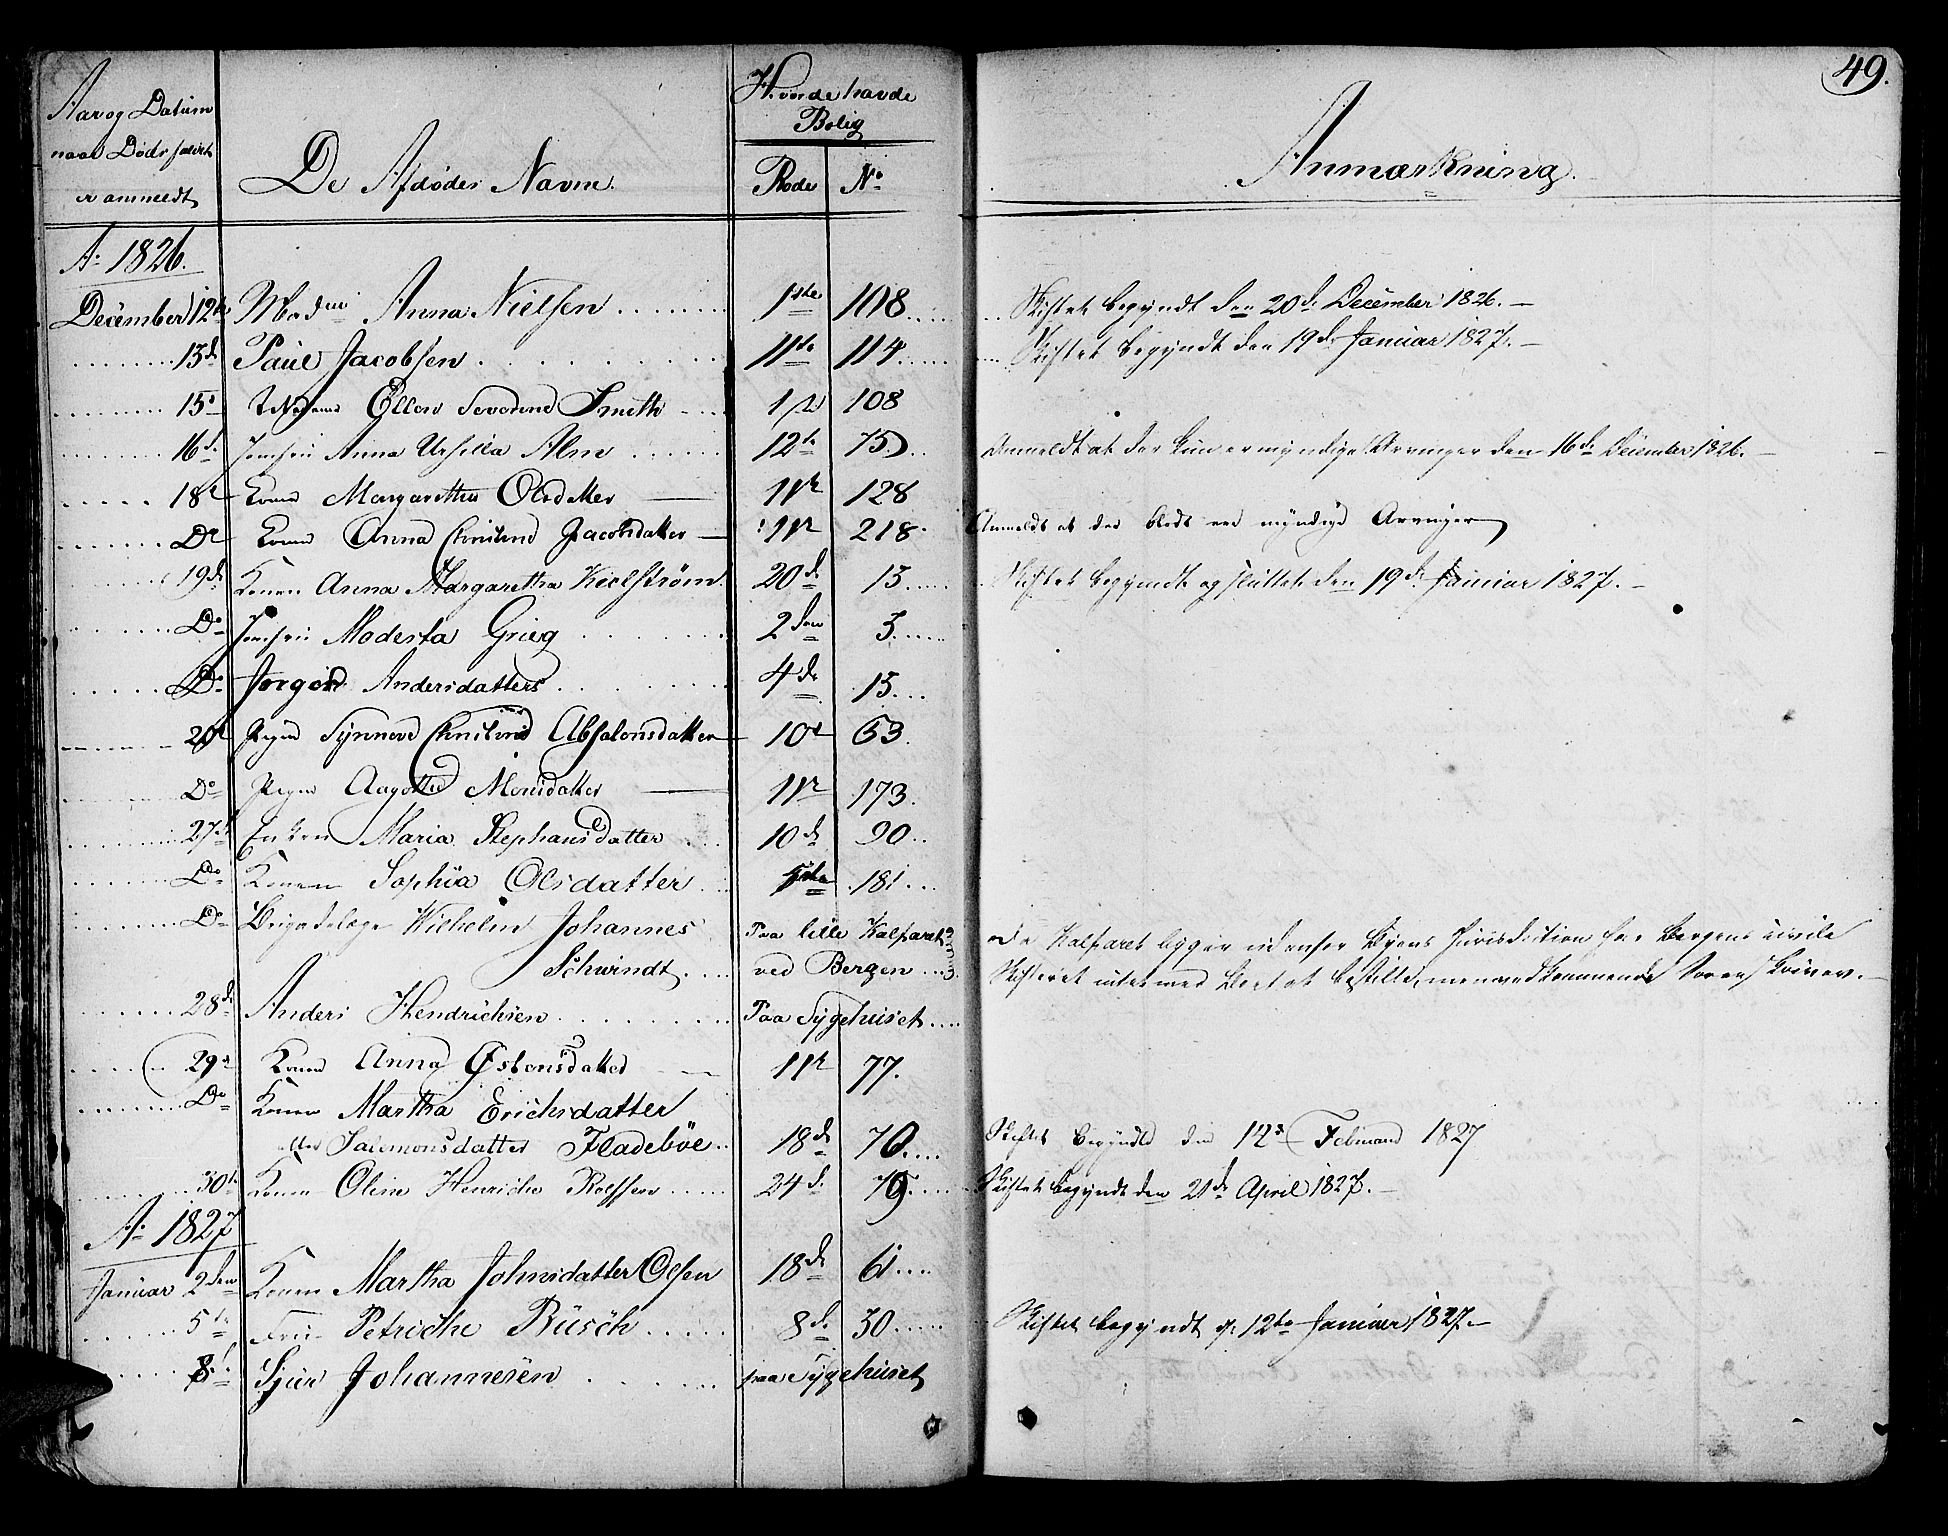 49.
Aar og Datum
naar Dødsfaldet
er anmeldt
De Afdødes Navne.
Hvor de havde
Bolig
Rode No
Anmærkning.
Ao 1826.
December 12te Madme Anna Nielsen 1ste 108 Skiftet begyndt den 20de December 1826.
13de Paul Jacobsen 11te 114 Skiftet begyndt den 19de Januar 1827.
15 Madame Ellen Severine Smith 1ste 108
16de Jomfrue Anna Ursilla Alm 12te 75 Anmeldt at der kun er myndige Arvinger den 16de December 1826.
18de Konen Margaretha Olsdatter 11te 128
Do Konen Anna Christine Jacobsdatter 11te 218 Anmeldt at der blot ere myndige Arvinger
19de Konen Anna Margaretha Kielstrøm 20de 13 Skiftet begyndt og sluttet den 19de Januar 1827.
Do Jomfrue Modesta Grieg 2den 3
Do Jørgen Andersdatters 4de 13
20de Pigen Synneve Christine Absalonsdatter 10de 53
Do Pigen Aagothe Monsdatter 11te 173
27de Enken Maria Stephansdatter 10de 90
Do Konen Sophia Olsdatter 181
Do Brigadelæge Wilhelm Johannes Paa lille Kalfaret
Schwindt ved Bergen
Da Kalfaret ligger udenfor Byens Jurisdiction har Bergens civile
Skifteret intet med Boet at bestille, men vedkommende Sorenskriver.
28de Anders Hendrichsen Paa Sygehuset
29de Konen Anna Østensdatter 11te 77.
Do Konen Martha Erichsdatter
eller Salomonsdatter Fladebøe 18de 70 Skiftet begyndte den 12te Februari 1827
30te Konen Oline Henriche Rolfsen 24de 79 Skiftet begyndt den 21de April 1827.
Ao 1827
Januar 2den Konen Martha Johnsdatter Olsen 18de 61
5te Frue Petriche Büsch 8de 30 Skiftet begyndt d. 12te Januar 1827.
8de Sjur Johannesen paa Sygehuset